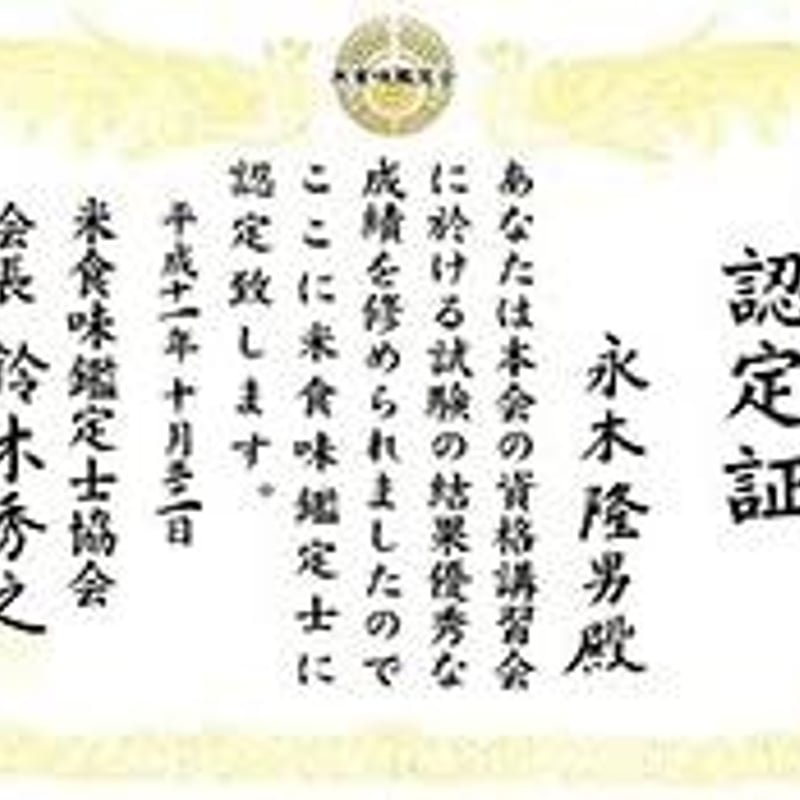 認定証
永木隆男殿
あなたは本会の資格講習会
に於ける試験の結果優秀な
成績を修められましたので
ここに米食味鑑定士に
認定致します。
平成十一年十月 日
米食味鑑定士協会
会長 鈴木秀之